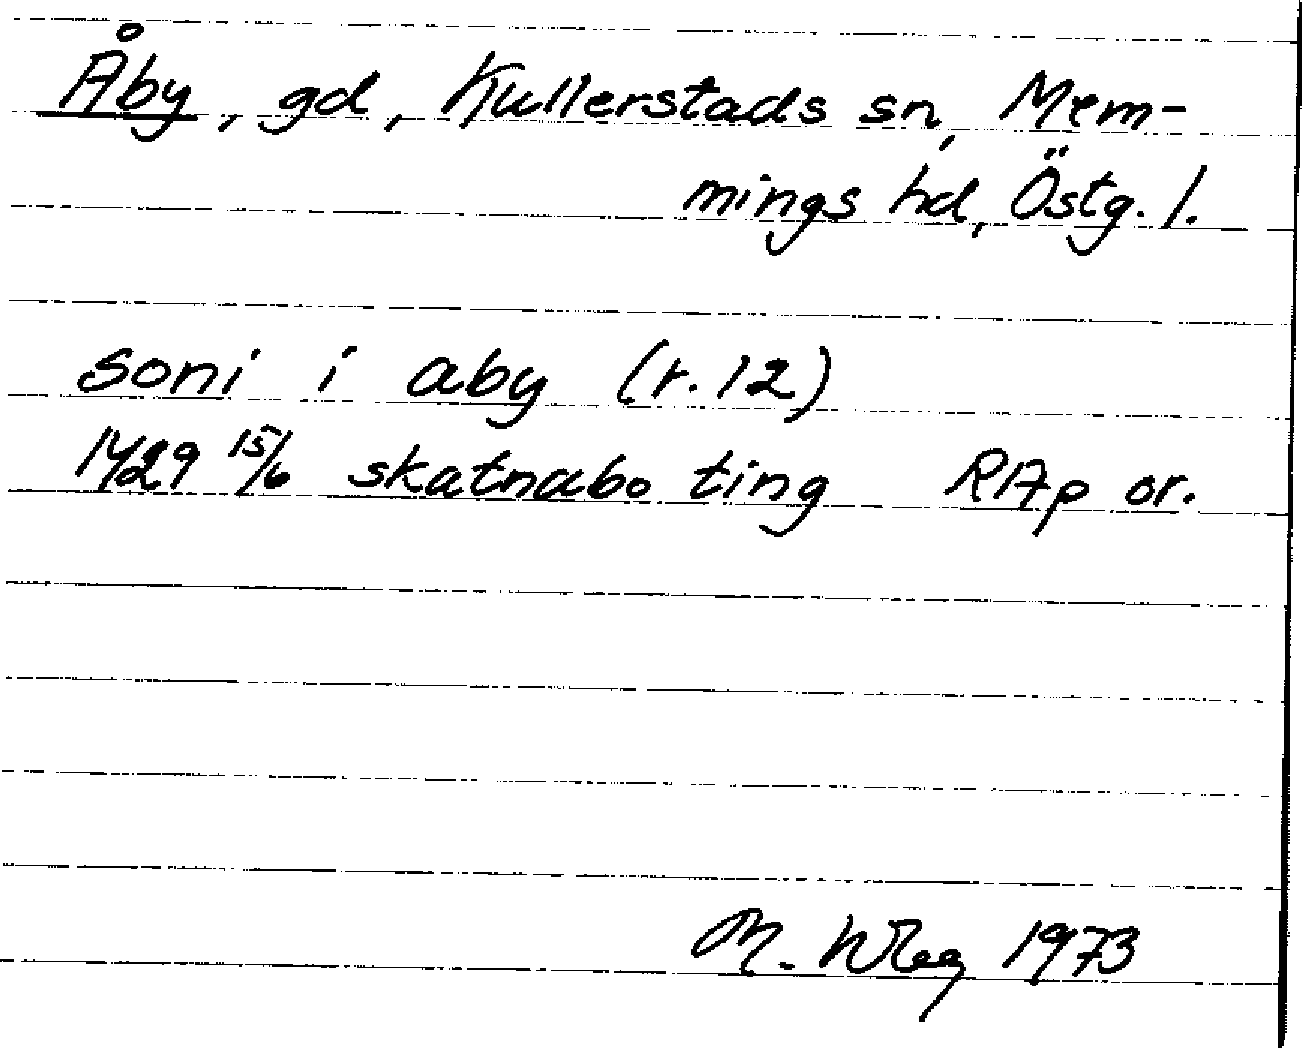 Åby, gd, Kullerstads sn, Mem-
mings hd, Östg. l.
soni i aby (r. 12)
1429 15/6 skatnabo ting RAp or.
M. 1973